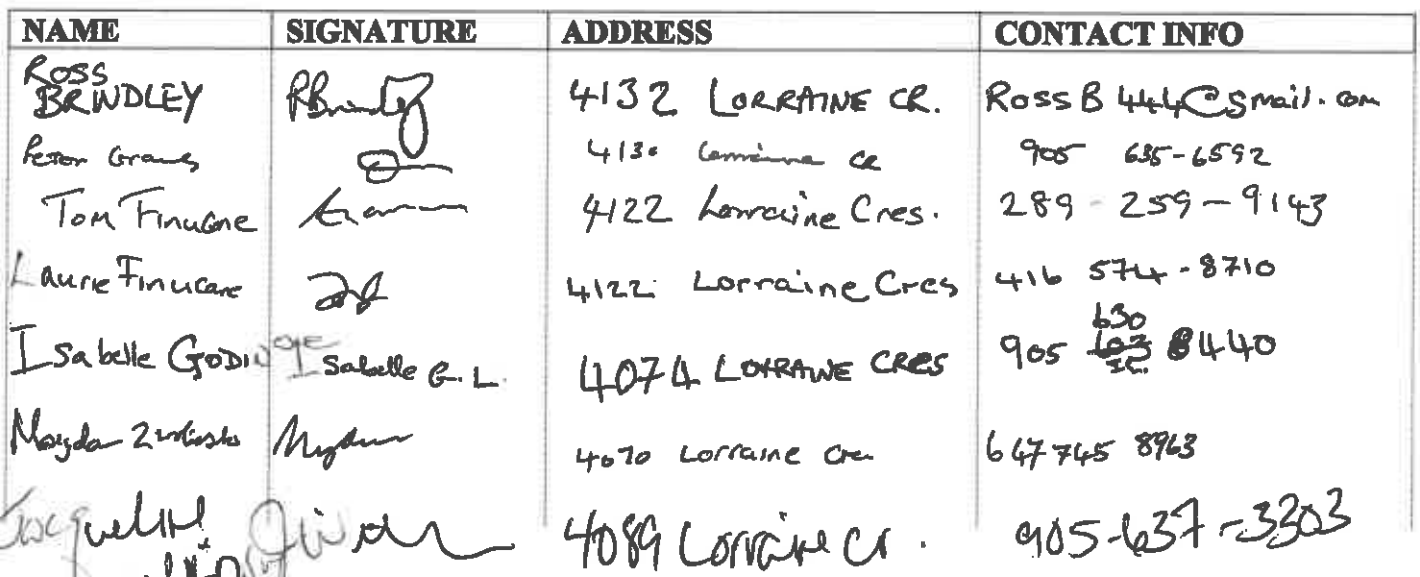 NAME SIGNATURE ADDRESS CONTACT INFO
Ross
BRINDLEY RBrindley 4132 LORRAINE CR. RossB444@gmail.com
Peter 4130 CR 905 635-6592
Tom Finucane 4122 Lorraine Cres. 289-259-9143
Laurie Finucane 4122 Lorraine Cres 416 574-8710
630
Isabelle GODIN Isabelle G.L. 4074 LORRAINE CRES 905 603 8440
Magda 4070 Lorraine Cres 647 745 8963
4089 Lorraine Cr. 905-637-3303